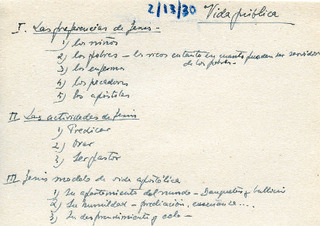 2/13/30
Vida pública
I. Las preferencias de Jesús -
1) los niños
2) los pobres - los ricos en tanto en cuanto pueden ser servidores
de los pobres -
3) los enfermos
4) los pecadores
5) los apóstoles
II Las actividades de Jesús
1) Predicar
2) Orar
3) Ser pastor
III Jesús modelo de vida apostólica
1) Su apartamiento del mundo - Banquetes y bullicio
2) Su humildad - predicación, enseñanza ....
3) Su desprendimiento y celo -